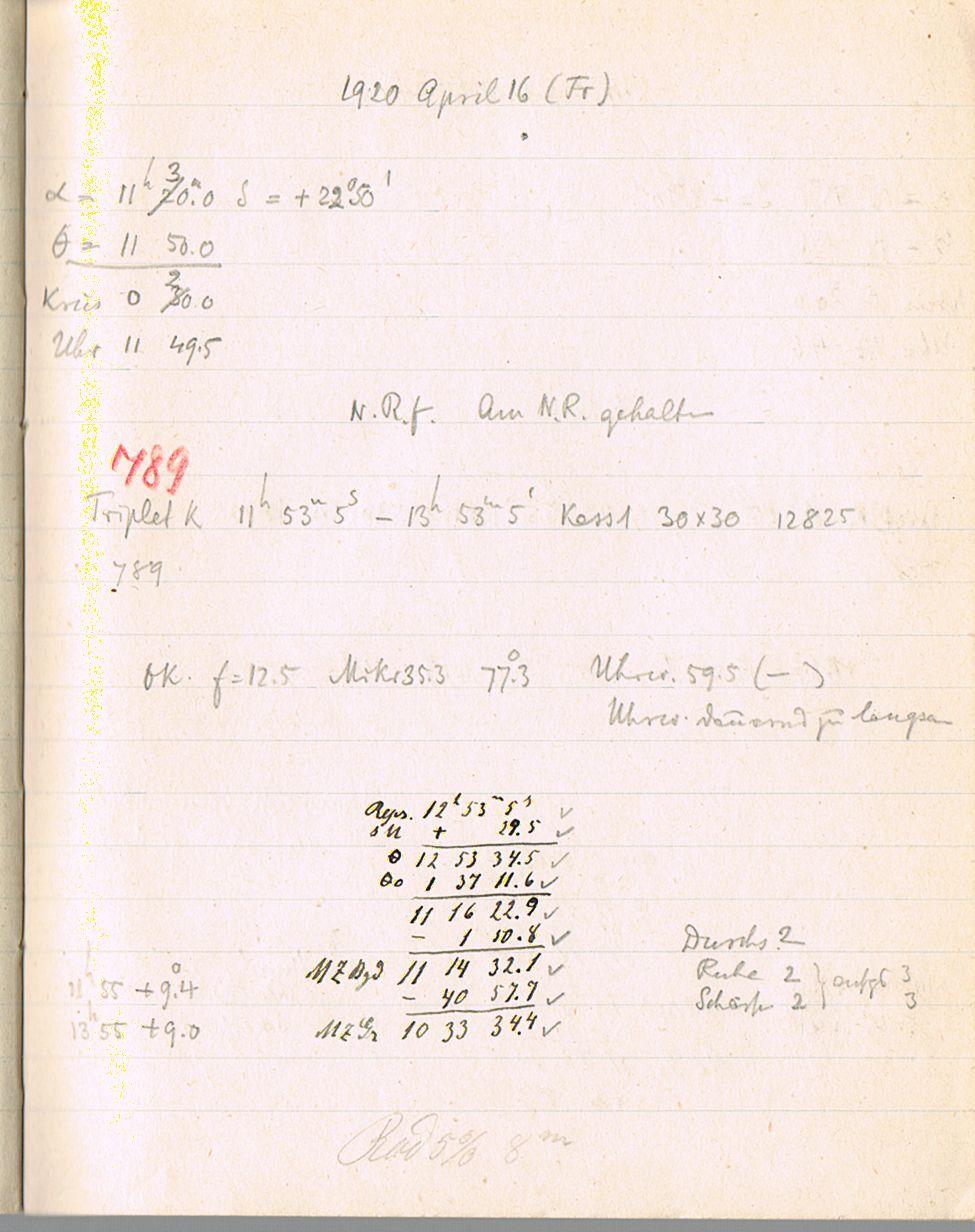 1920 April 16 (Fr)
α = 11ʰ 30ᵐ.0 δ = +22°50'
θ = 11 50.0
Kreis 0 20.0
Uhr 11 49.5
N.R.f. Am N.R. gehalten
789
Triplet K 11ʰ 53ᵐ 5ˢ – 13ʰ 53ᵐ 5ˢ Kass 1 30x30 12825
789
OK. f=12.5 Mikr 35.3 77°.3 Uhrw. 59.5 (—)
Uhrw. dauernd zu langsam
12ʰ 53ᵐ 5ˢ ✓
δU + 29.5 ✓
θ 12 53 34.5 ✓
θo 1 37 11.6 ✓
11 16 22.9 ✓
– 1 50.8 ✓
MZBgd 11 14 32.1 ✓
– 40 57.7 ✓
MZGr 10 33 34.4 ✓
11ʰ 55 +9°.4
13ʰ 55 +9.0
Durchs 2
Ruhe 2 } aufg 3
Schärfe 2 3
8ᵐ